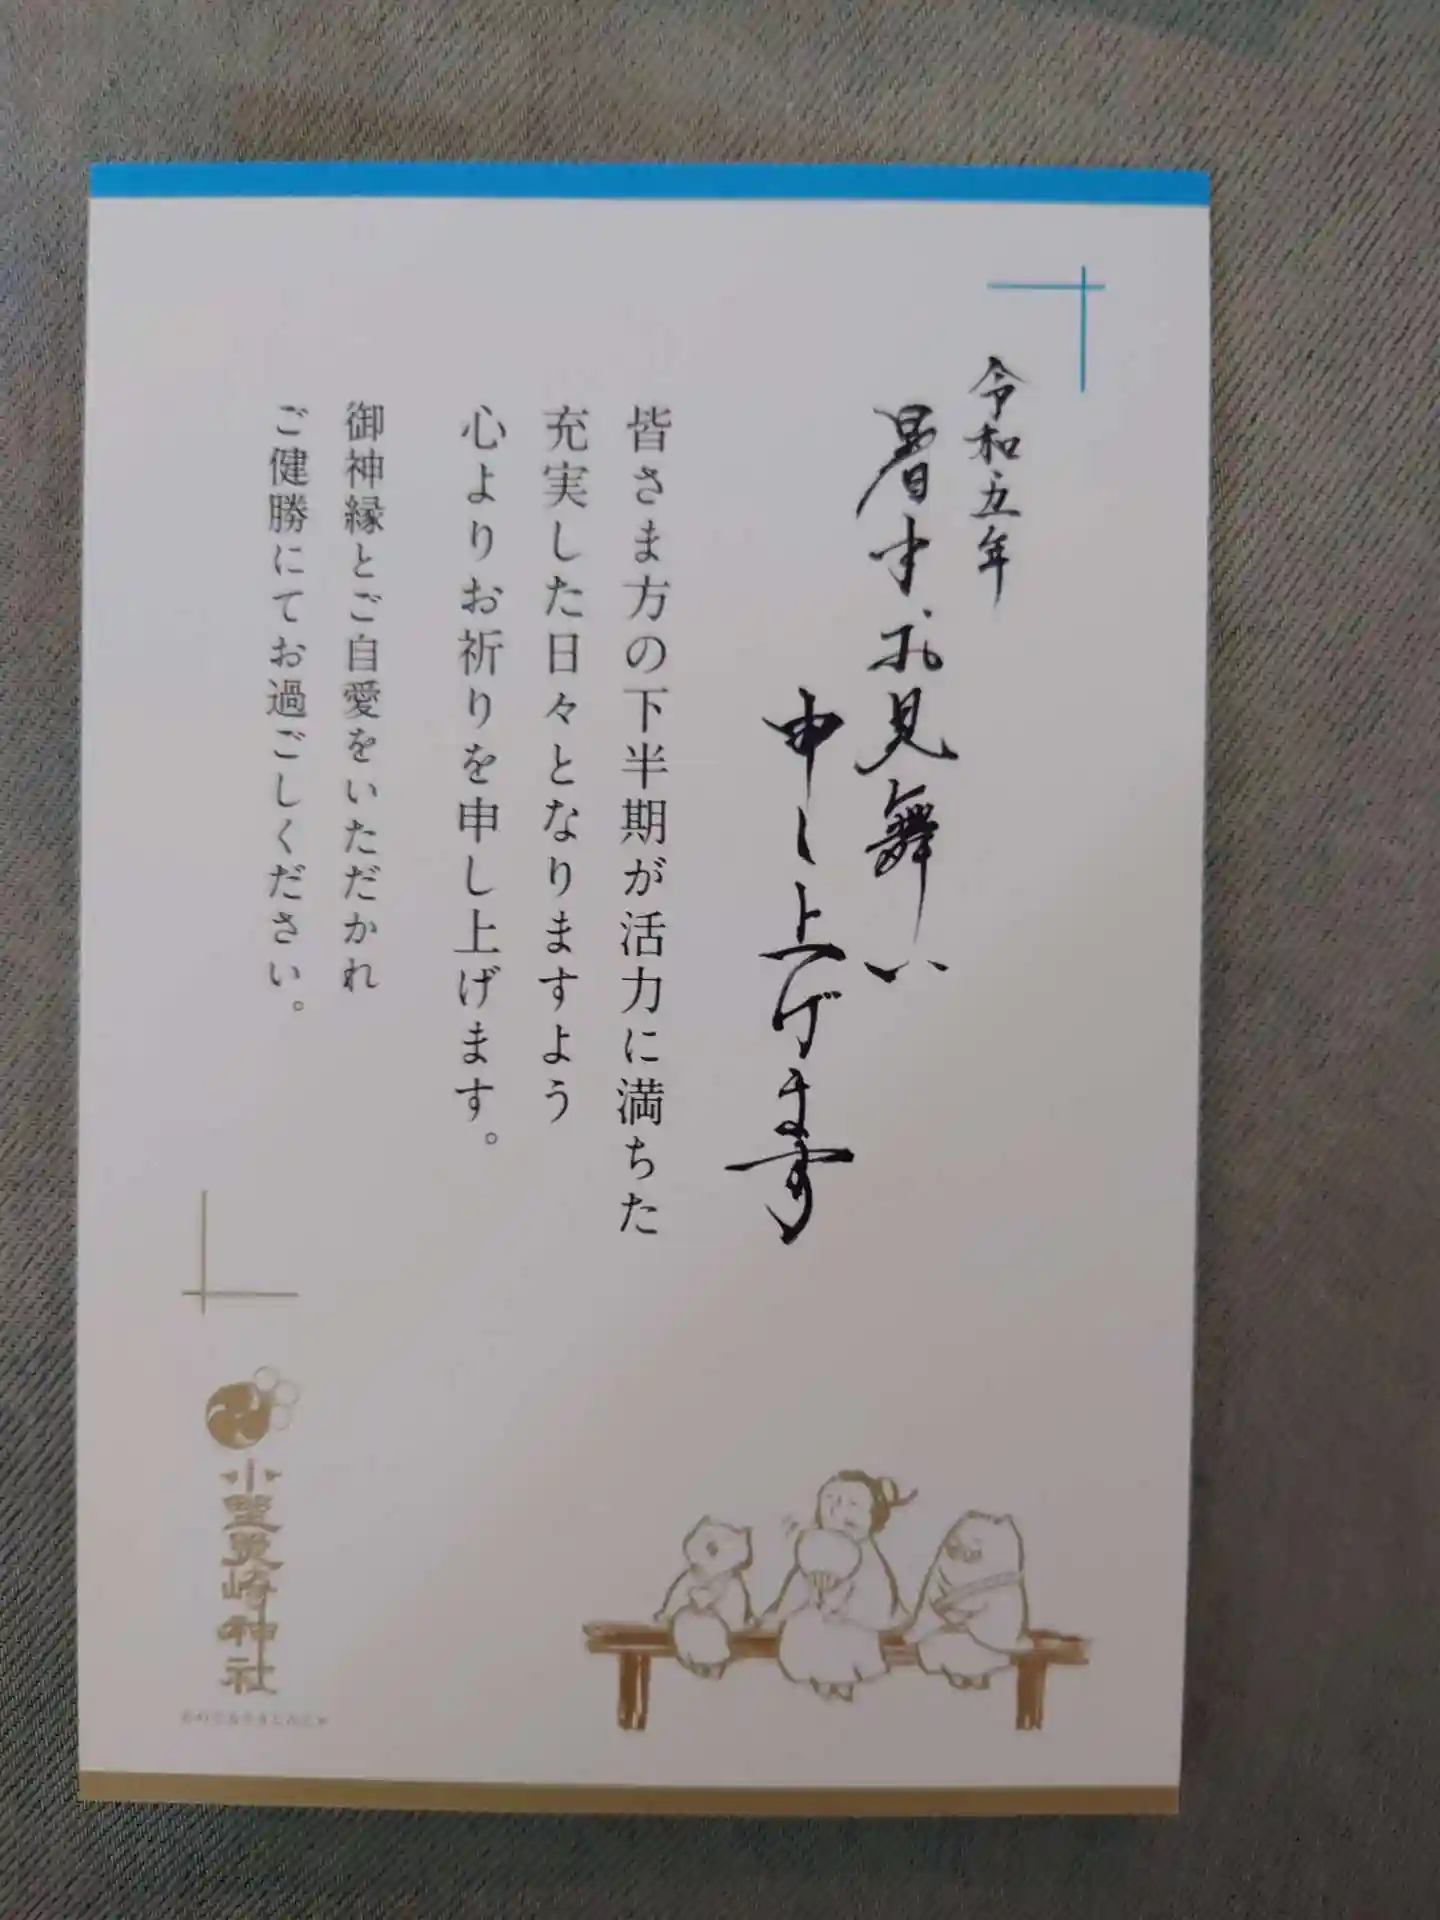 令和五年
暑中お見舞い
申し上げます
皆さま方の下半期が活力に満ちた
充実した日々となりますよう
心よりお祈りを申し上げます。
御神縁とご自愛をいただかれ
ご健勝にてお過ごしください。
小野照崎神社
おのてるさきじんじゃ